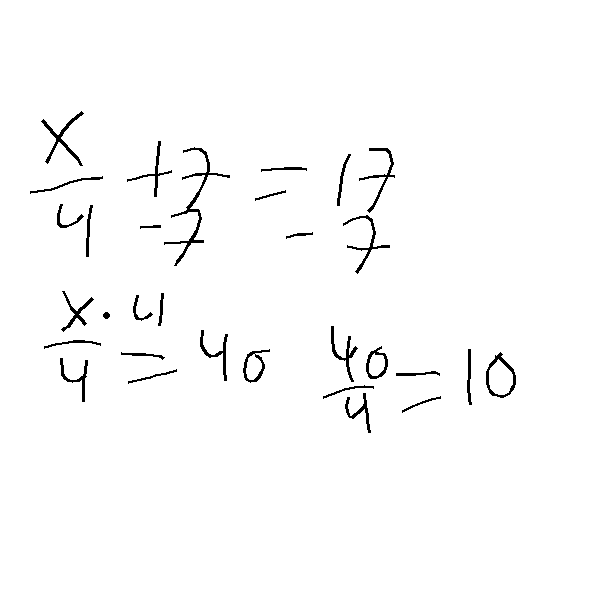 x/4 + 7 = 17
- 7 - 7
x · 4/4 = 40 40/4 = 10